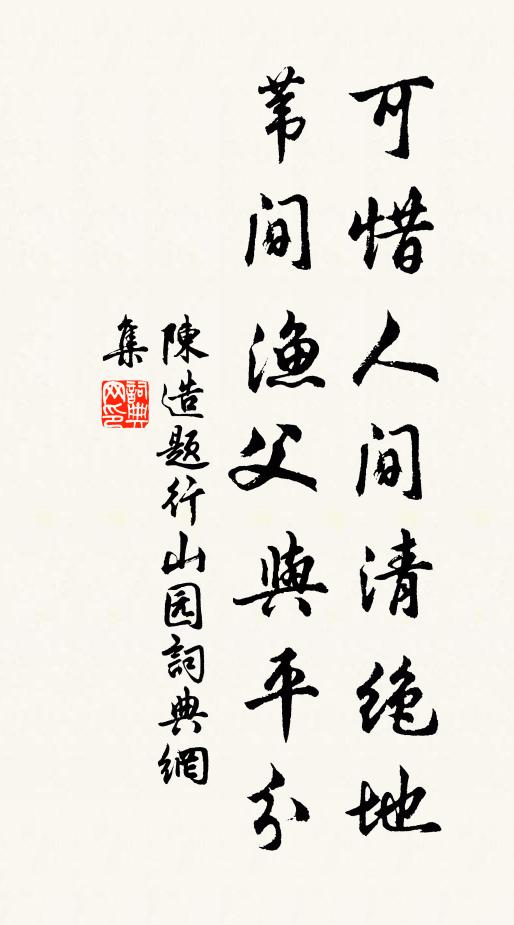 可惜人间清绝地
苇间渔父與平分
陳造题行山园詞典網
集
詞典网印